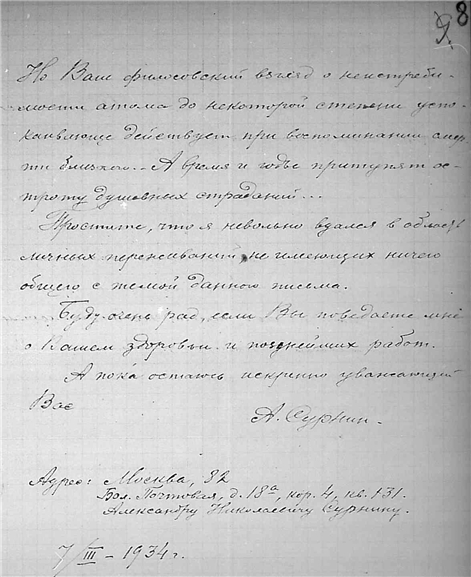 9. 8
Но Ваш философский взгляд о неистреби-
мости атома до некоторой степени успо-
каивающе действует при воспоминании смер-
ти близкого... А время и годы притупят ос-
троту душевных страданий...
Простите, что я невольно вдался в область
личных переживаний, не имеющих ничего
общего с темой данного письма.
Буду очень рад, если Вы поведаете мне
о Вашем здоровьи и позднейших работ.
А пока остаюсь искренно уважающий
Вас
А. Сурнин.
Адрес: Москва, 82
Бол. Почтовая, д. 18а, кор. 4, кв. 131.
Александру Николаевичу Сурнину.
7/III – 1934 г.